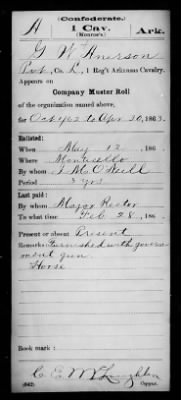 (Confederate.)
A 1 Cav. Ark.
(Monroe's)
G W Anerson
Pvt, Co. L, 1 Reg't Arkansas Cavalry.
Appears on
Company Muster Roll
of the organization named above,
for Oct 62 to Apr 30, 1863.
Enlisted:
When May 12, 186
Where Monticello
By whom McO'Neill
Period 3 yrs
Last paid:
By whom Major Rector
To what time Feb 28, 186
Present or absent Present
Remarks: Furnished with govern
ment gun
Horse
Book mark:
C. E. McLaughlin
(642) Copyist.